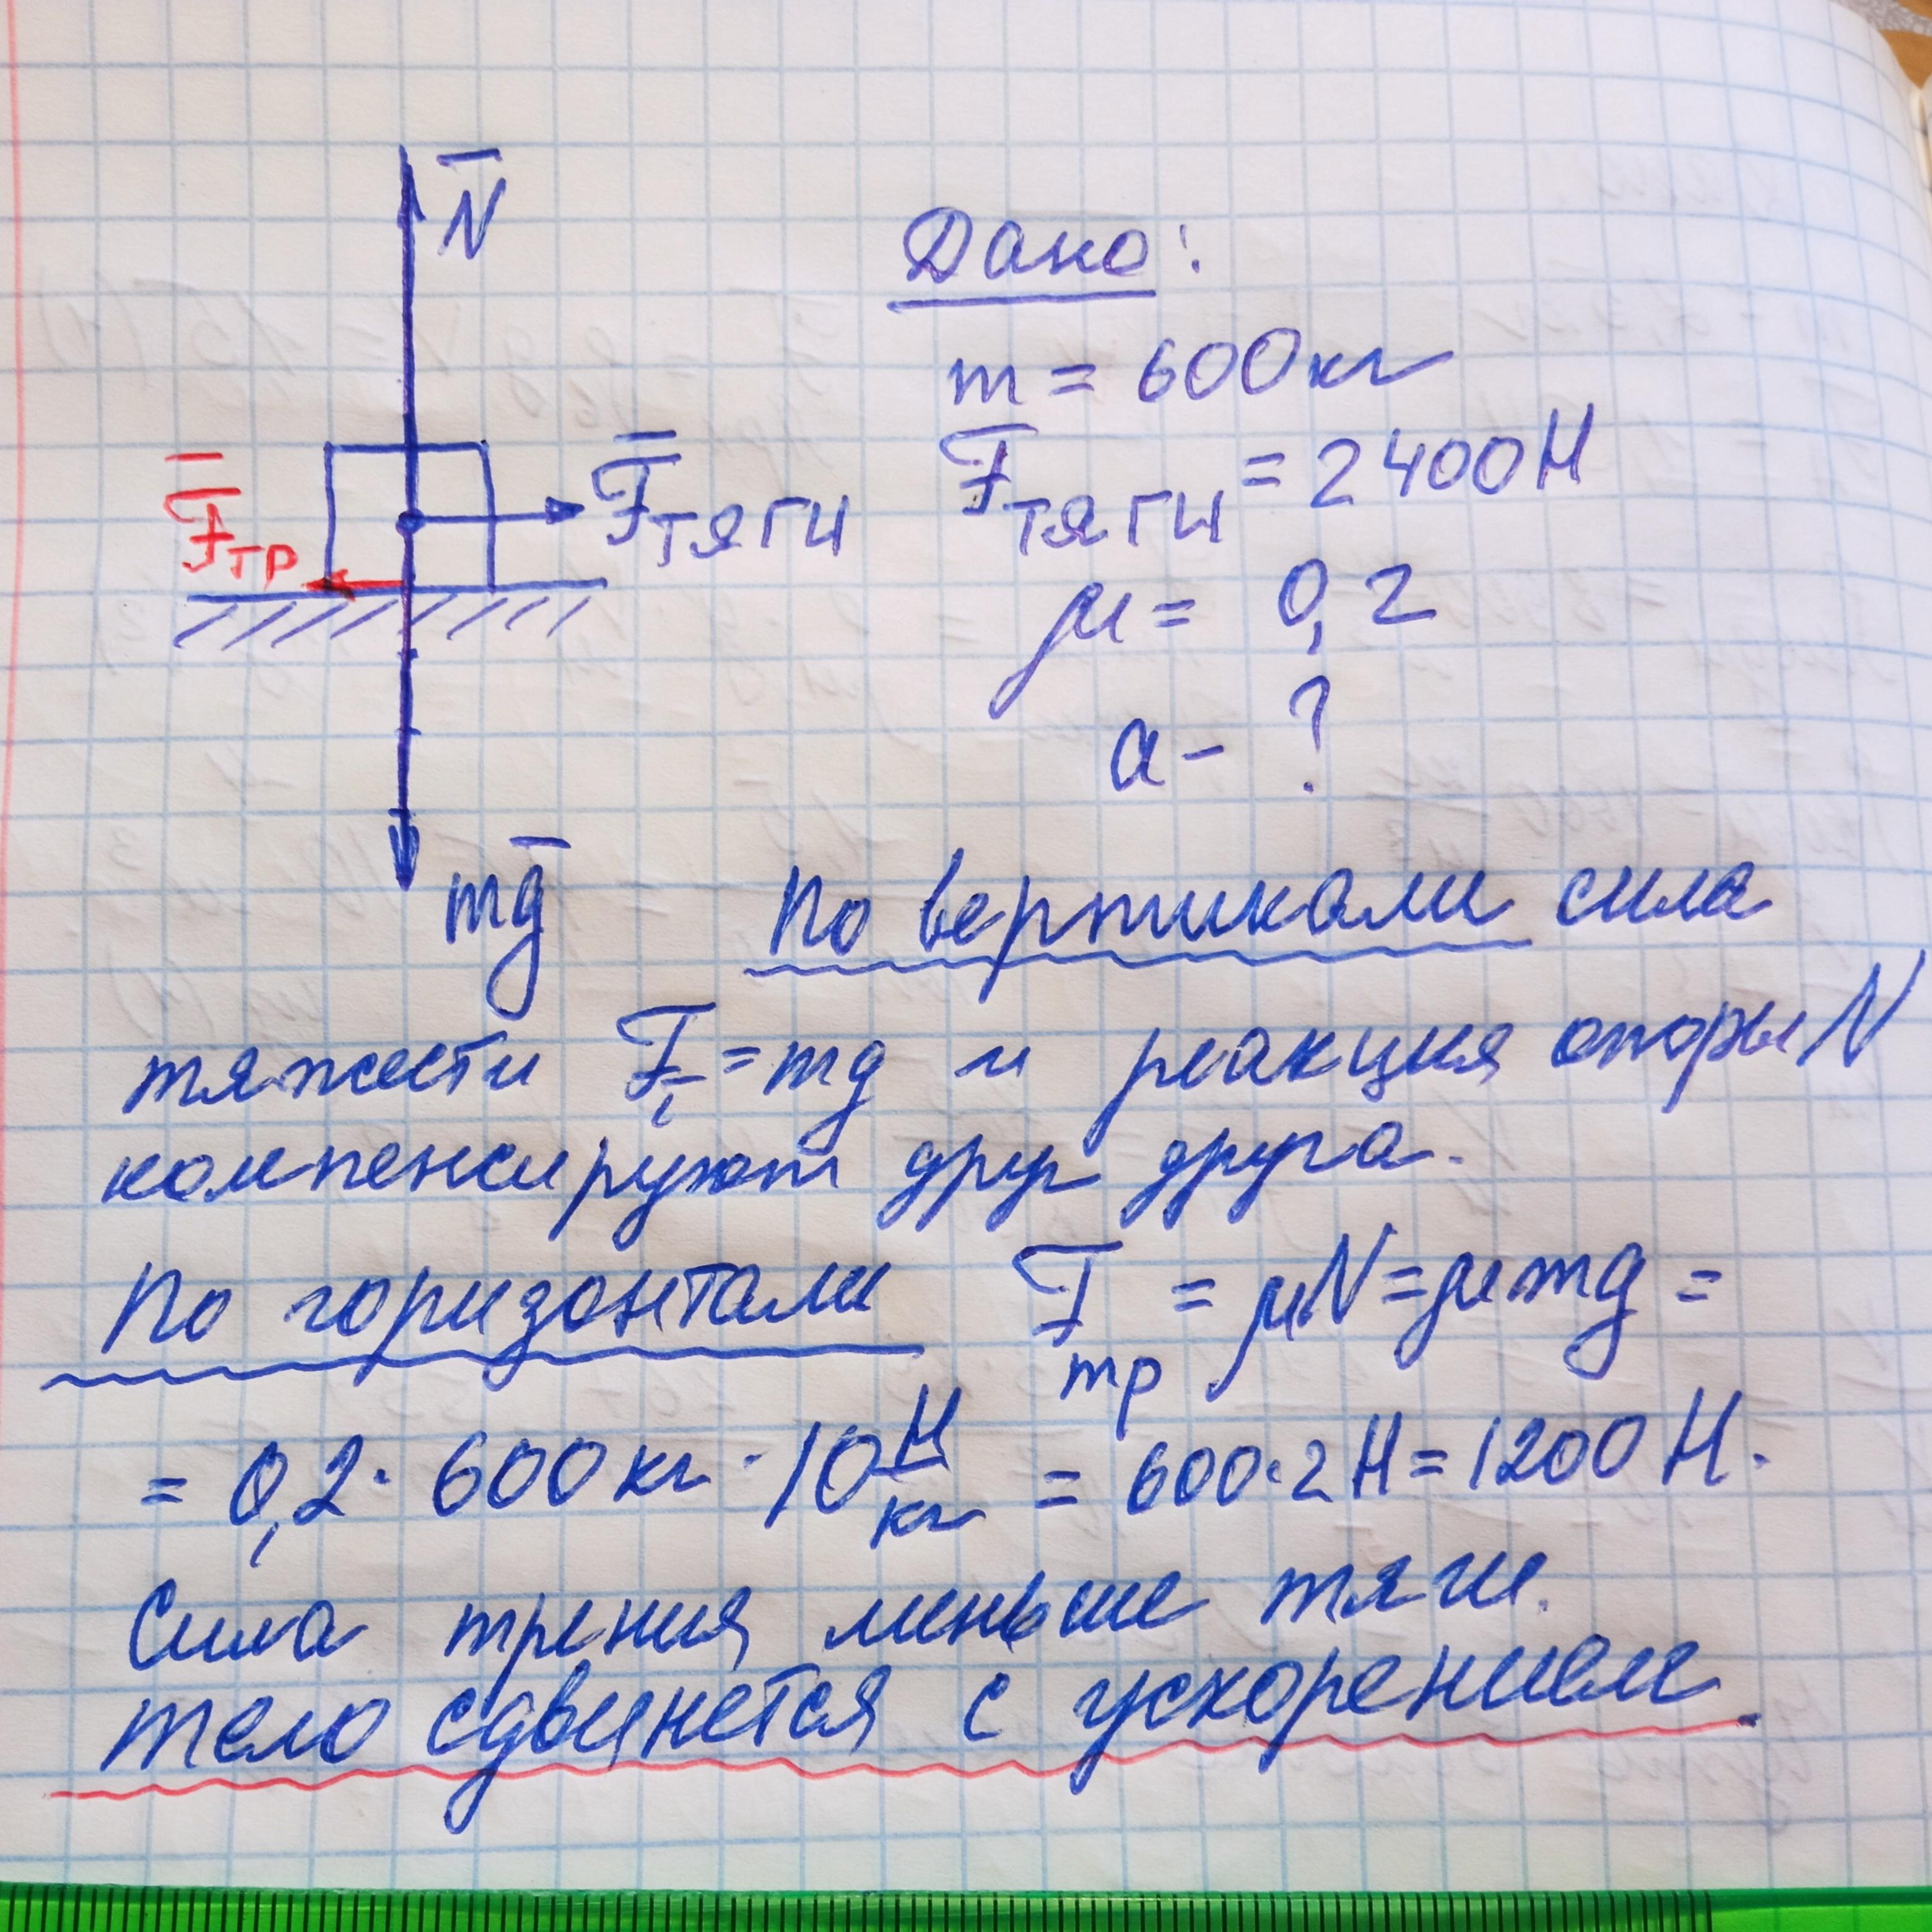 N̅
Дано:
m = 600 кг
F̅тр
F̅тяги
F̅тяги = 2400 Н
μ = 0,2
a - ?
mg̅
По вертикали сила
тяжести F̅т = mg и реакция опоры N
компенсируют друг друга.
По горизонтали Fтр = μN = μmg =
= 0,2 · 600 кг · 10 Н/кг = 600·2 Н = 1200 Н.
Сила трения меньше тяги.
тело сдвинется с ускорением.